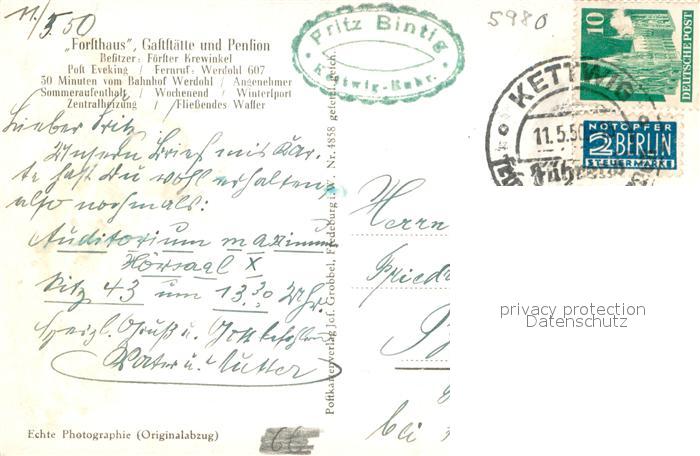 11/5.50
5980
„Forsthaus", Gaststätte und Pension
Besitzer: Förster Krewinkel
Post Eveking / Fernruf: Werdohl 607
30 Minuten vom Bahnhof Werdohl / Angenehmer
Sommeraufenthalt / Wochenend / Wintersport
Zentralheizung / Fließendes Wasser
Fritz Bintig
Kettwig-Ruhr.
10
DEUTSCHE POST
KETTWIG
11.5.50
NOTOPFER
2 BERLIN
STEUERMARKE
Lieber Fritz
Unsern Brief mit Kar-
te hast Du wohl erhalten,
also nochmals:
Auditorium maximum
Hörsaal X
Sitz 43 um 13.30 Uhr.
Herzl. Gruß u. Gott befohlen
Vater u. Mutter
Postkartenverlag Jos. Grobbel, Fredeburg i. W. Nr. 4858 gesetzl. gesch.
Herrn
Friede
bei
privacy protection
Datenschutz
Echte Photographie (Originalabzug)